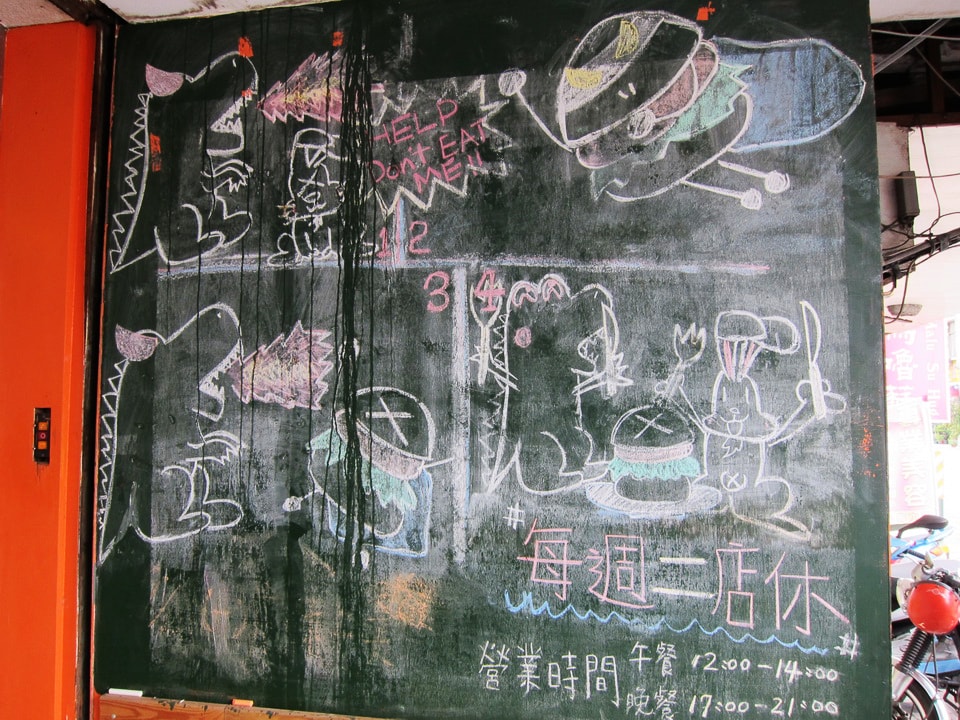 HELP
Don't EAT
ME!!
1 2
3 4
#
每週二店休
#
營業時間 午餐 12:00-14:00
晚餐 17:00-21:00